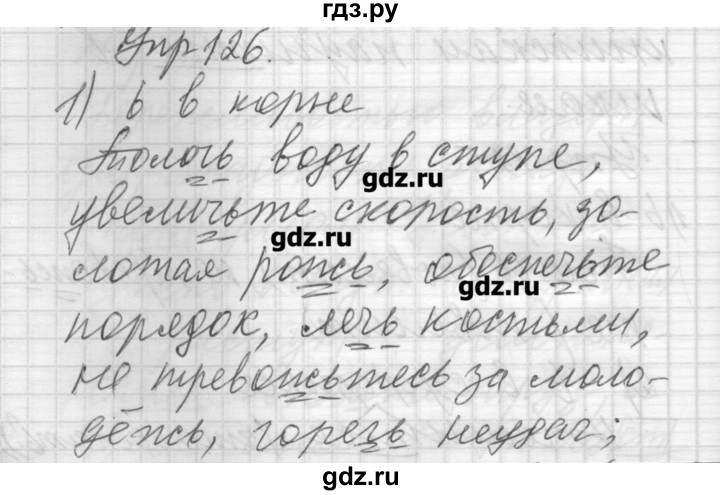 гдз.ру
Упр 126.
1) ь в корне
Толочь воду в ступе,
gdz.ru
увеличьте скорость, зо-
gdz.ru
лотая рожь, обеспечьте
gdz.ru
порядок, лечь костьми,
не тревожьтесь за моло-
дёжь, горечь неудач;
гдз.ру